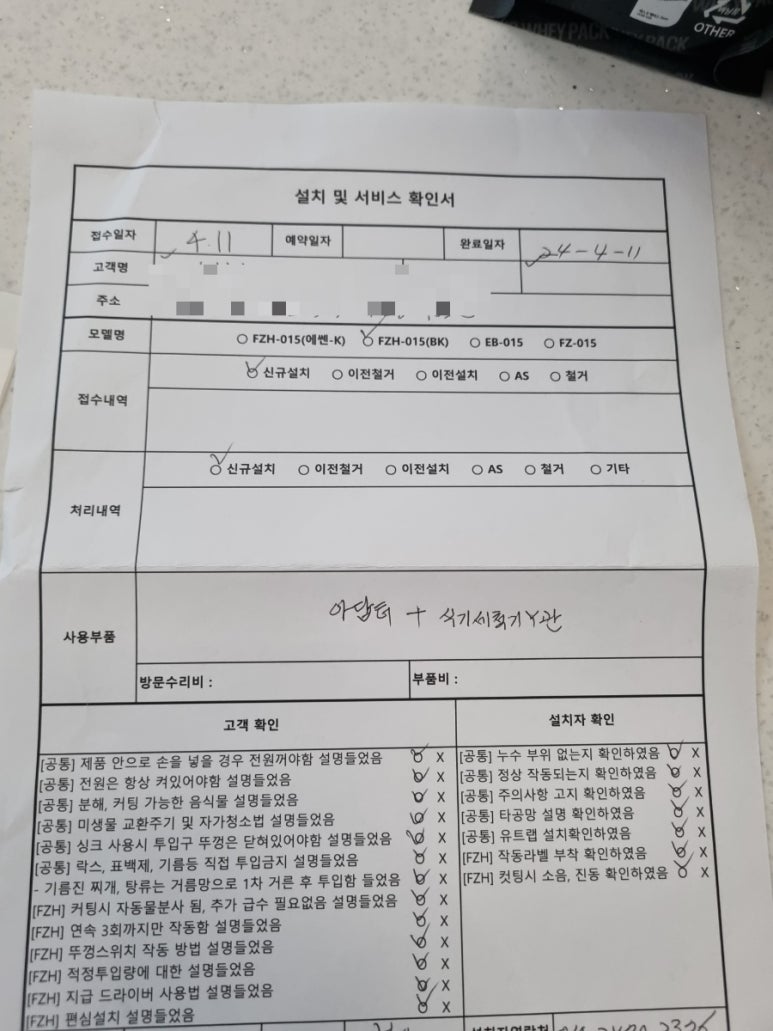 WHEY PACK
PACK
OTHER
설치 및 서비스 확인서
접수일자 4.11 예약일자 완료일자 24-4-11
고객명
주소
모델명 ○ FZH-015(에쎈-K) ○ FZH-015(BK) ○ EB-015 ○ FZ-015
접수내역 ○ 신규설치 ○ 이전철거 ○ 이전설치 ○ AS ○ 철거
처리내역 ○ 신규설치 ○ 이전철거 ○ 이전설치 ○ AS ○ 철거 ○ 기타
사용부품 아답터 + 식기세척기Y관
방문수리비 : 부품비 :
고객 확인 설치자 확인
[공통] 제품 안으로 손을 넣을 경우 전원꺼야함 설명들었음 O X
[공통] 전원은 항상 켜있어야함 설명들었음 O X
[공통] 분해, 커팅 가능한 음식물 설명들었음 O X
[공통] 미생물 교환주기 및 자가청소법 설명들었음 O X
[공통] 싱크 사용시 투입구 뚜껑은 닫혀있어야함 설명들었음 O X
[공통] 락스, 표백제, 기름등 직접 투입금지 설명들었음 O X
- 기름진 찌개, 탕류는 거름망으로 1차 거른 후 투입함 들었음 O X
[FZH] 커팅시 자동물분사 됨, 추가 급수 필요없음 설명들었음 O X
[FZH] 연속 3회까지만 작동함 설명들었음 O X
[FZH] 뚜껑스위치 작동 방법 설명들었음 O X
[FZH] 적정투입량에 대한 설명들었음 O X
[FZH] 지급 드라이버 사용법 설명들었음 O X
[FZH] 편심설치 설명들었음 O X
[공통] 누수 부위 없는지 확인하였음 O X
[공통] 정상 작동되는지 확인하였음 O X
[공통] 주의사항 고지 확인하였음 O X
[공통] 타공망 설명 확인하였음 O X
[공통] 유트랩 설치확인하였음 O X
[FZH] 작동라벨 부착 확인하였음 O X
[FZH] 컷팅시 소음, 진동 확인하였음 O X
설치자연락처